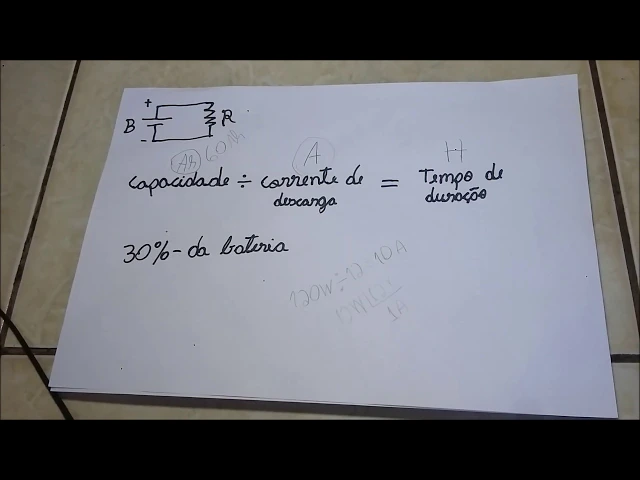 +
B R
-
Ah 60Ah
A
H
capacidade ÷ corrente de descarga = Tempo de duração
30% - da bateria
120W÷12 10A
12W
1A